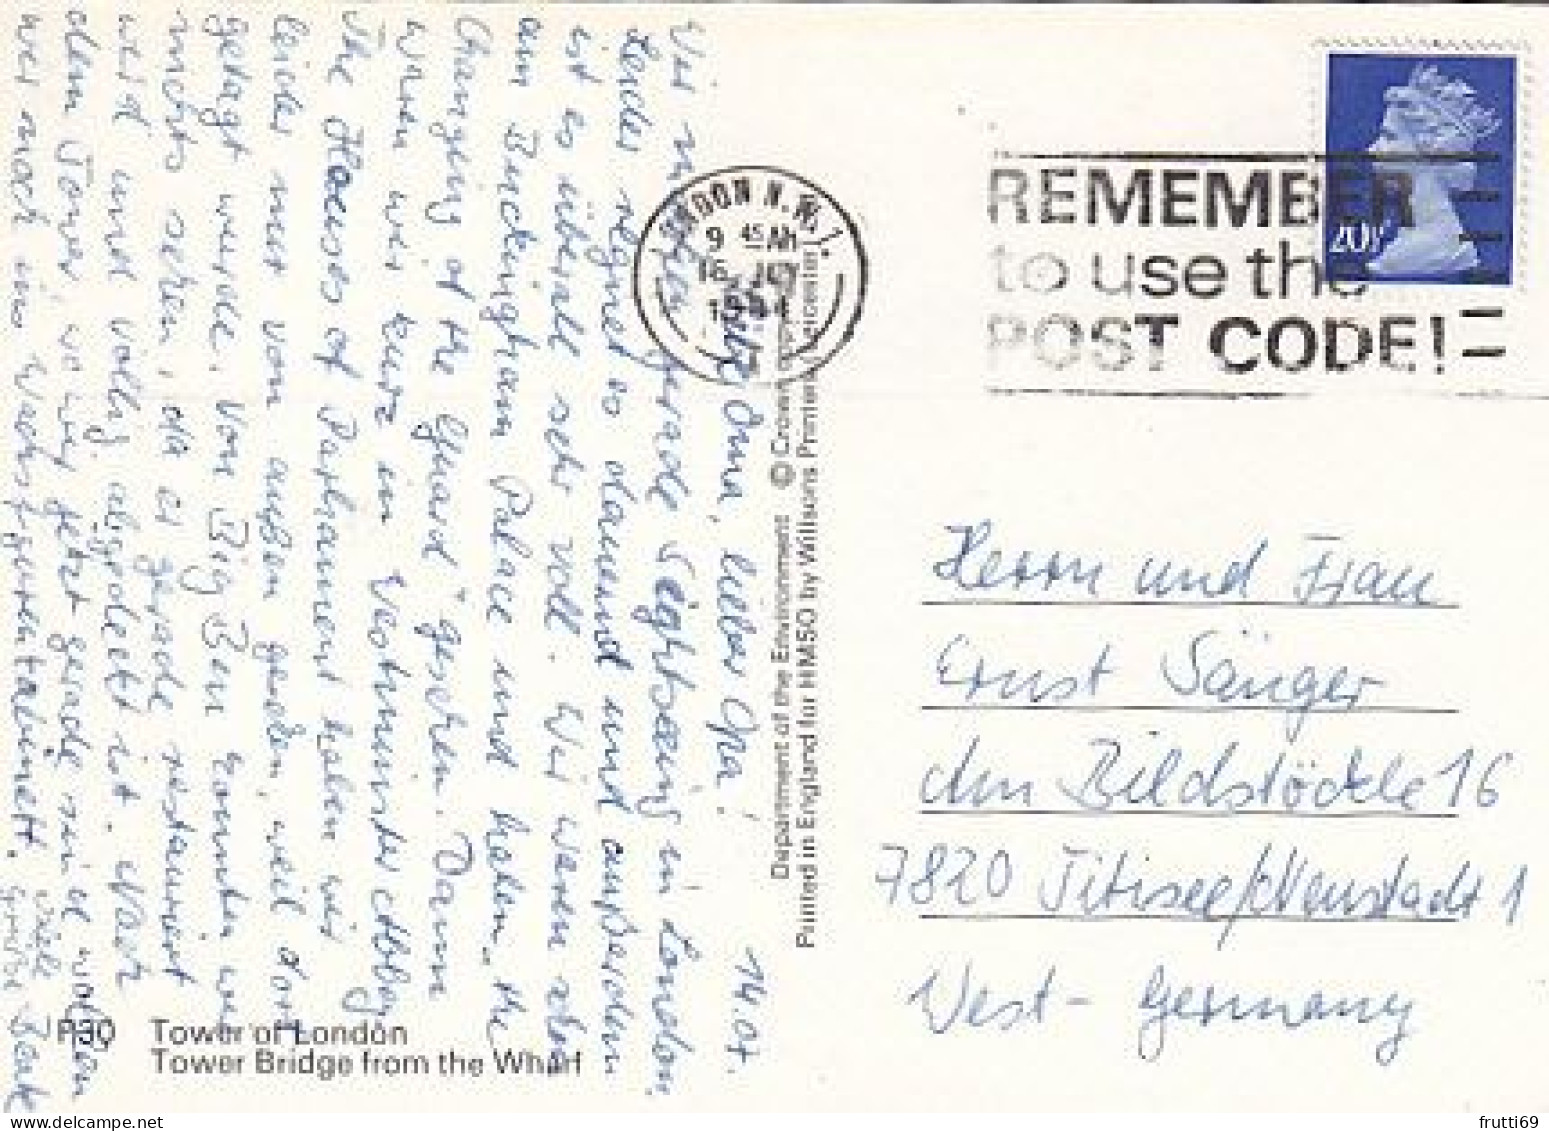 14.07.
Liebe Oma, lieber Opa!
Wir machen gerade Sightseeing in London.
Leider regnet es dauernd und außerdem
ist es überall sehr voll. Wir waren schon
am Buckingham Palace und haben „the
Changing of the Guard" gesehen. Dann
waren wir kurz in Westminster Abbey
The Houses of Parliament haben wir
leider nur von außen gesehen, weil dort
getagt wurde. Von Big Ben konnten wir
nichts sehen, da er gerade restauriert
wird und völlig abgedeckt ist. Nach
dem Tower, wo wir jetzt gerade sind wollen
wir noch ins Wachsfigurenkabinett.
Viele
Grüße Beate
P30 Tower of London
Tower Bridge from the Wharf
Department of the Environment © Crown
Printed in England for HMSO by Willsons Printers
LONDON N.W.1.
9 45 AM
16 JLY
REMEMBER
to use the
POST CODE!
20P
Herrn und Frau
Ernst Sänger
Am Bildstöckle 16
7820 Titisee/Neustadt 1
West-Germany
frutti69